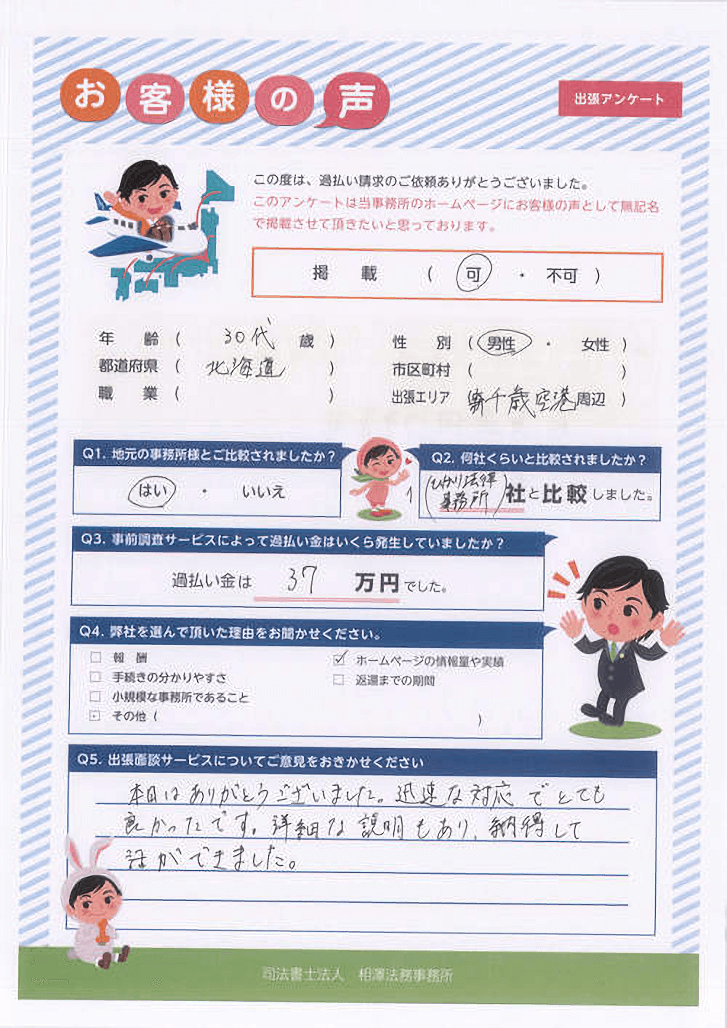 お客様の声
出張アンケート
この度は、過払い請求のご依頼ありがとうございました。
このアンケートは当事務所のホームページにお客様の声として無記名
で掲載させて頂きたいと思っております。
掲 載 ( 可 ・ 不可 )
年 齢 ( 30代 歳 ) 性 別 ( 男性 ・ 女性 )
都道府県 ( 北海道 ) 市区町村 ( )
職 業 ( ) 出張エリア 新千歳空港周辺 )
Q1. 地元の事務所様とご比較されましたか?
はい ・ いいえ
Q2. 何社くらいと比較されましたか?
(ひかり法律
事務所) 社と比較しました。
Q3. 事前調査サービスによって過払い金はいくら発生していましたか?
過払い金は 37 万円でした。
Q4. 弊社を選んで頂いた理由をお聞かせください。
□ 報 酬 ☑ ホームページの情報量や実績
□ 手続きの分かりやすさ □ 返還までの期間
□ 小規模な事務所であること
□ その他 ( )
Q5. 出張面談サービスについてご意見をおきかせください
本日はありがとうございました。迅速な対応でとても
良かったです。詳細な説明もあり、納得して
話ができました。
司法書士法人 相澤法務事務所